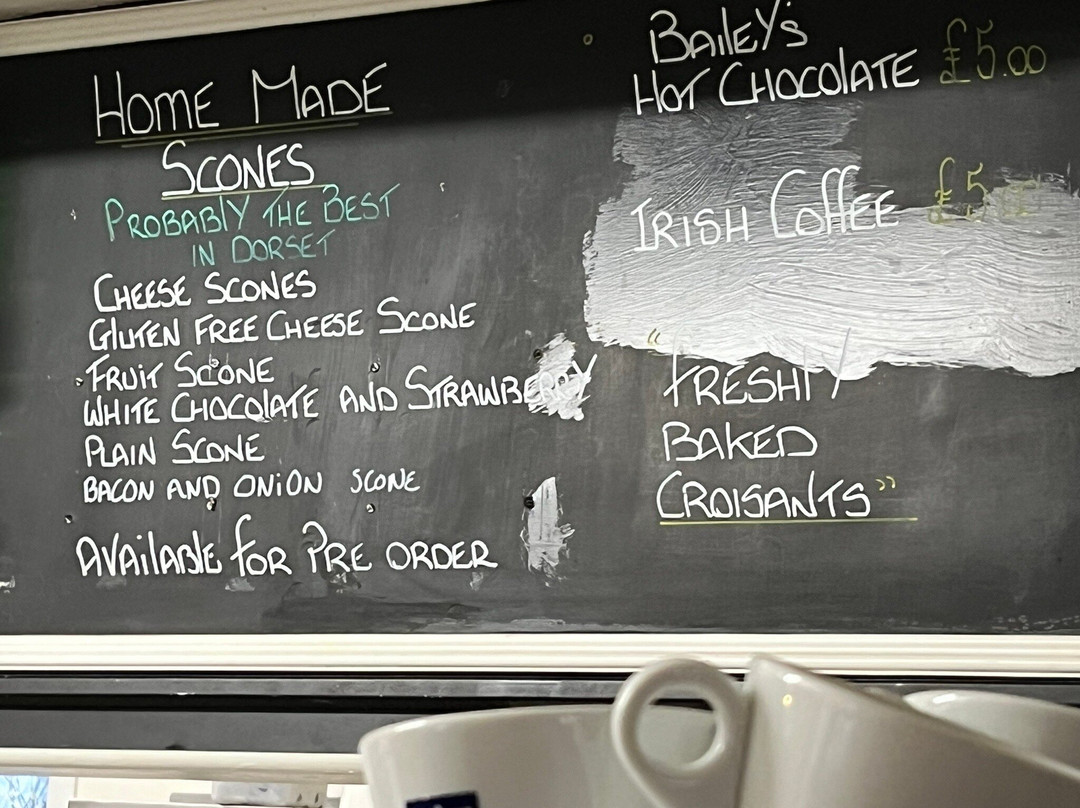 HOME MADE
SCONES
PROBABLY THE BEST
IN DORSET
CHEESE SCONES
GLUTEN FREE CHEESE SCONE
FRUIT SCONE
WHITE CHOCOLATE AND STRAWBERRY
PLAIN SCONE
BACON AND ONION SCONE
AVAILABLE FOR PRE ORDER
BAILEY'S
HOT CHOCOLATE £5.00
IRISH COFFEE £5.00
"FRESHLY
BAKED
CROISANTS"